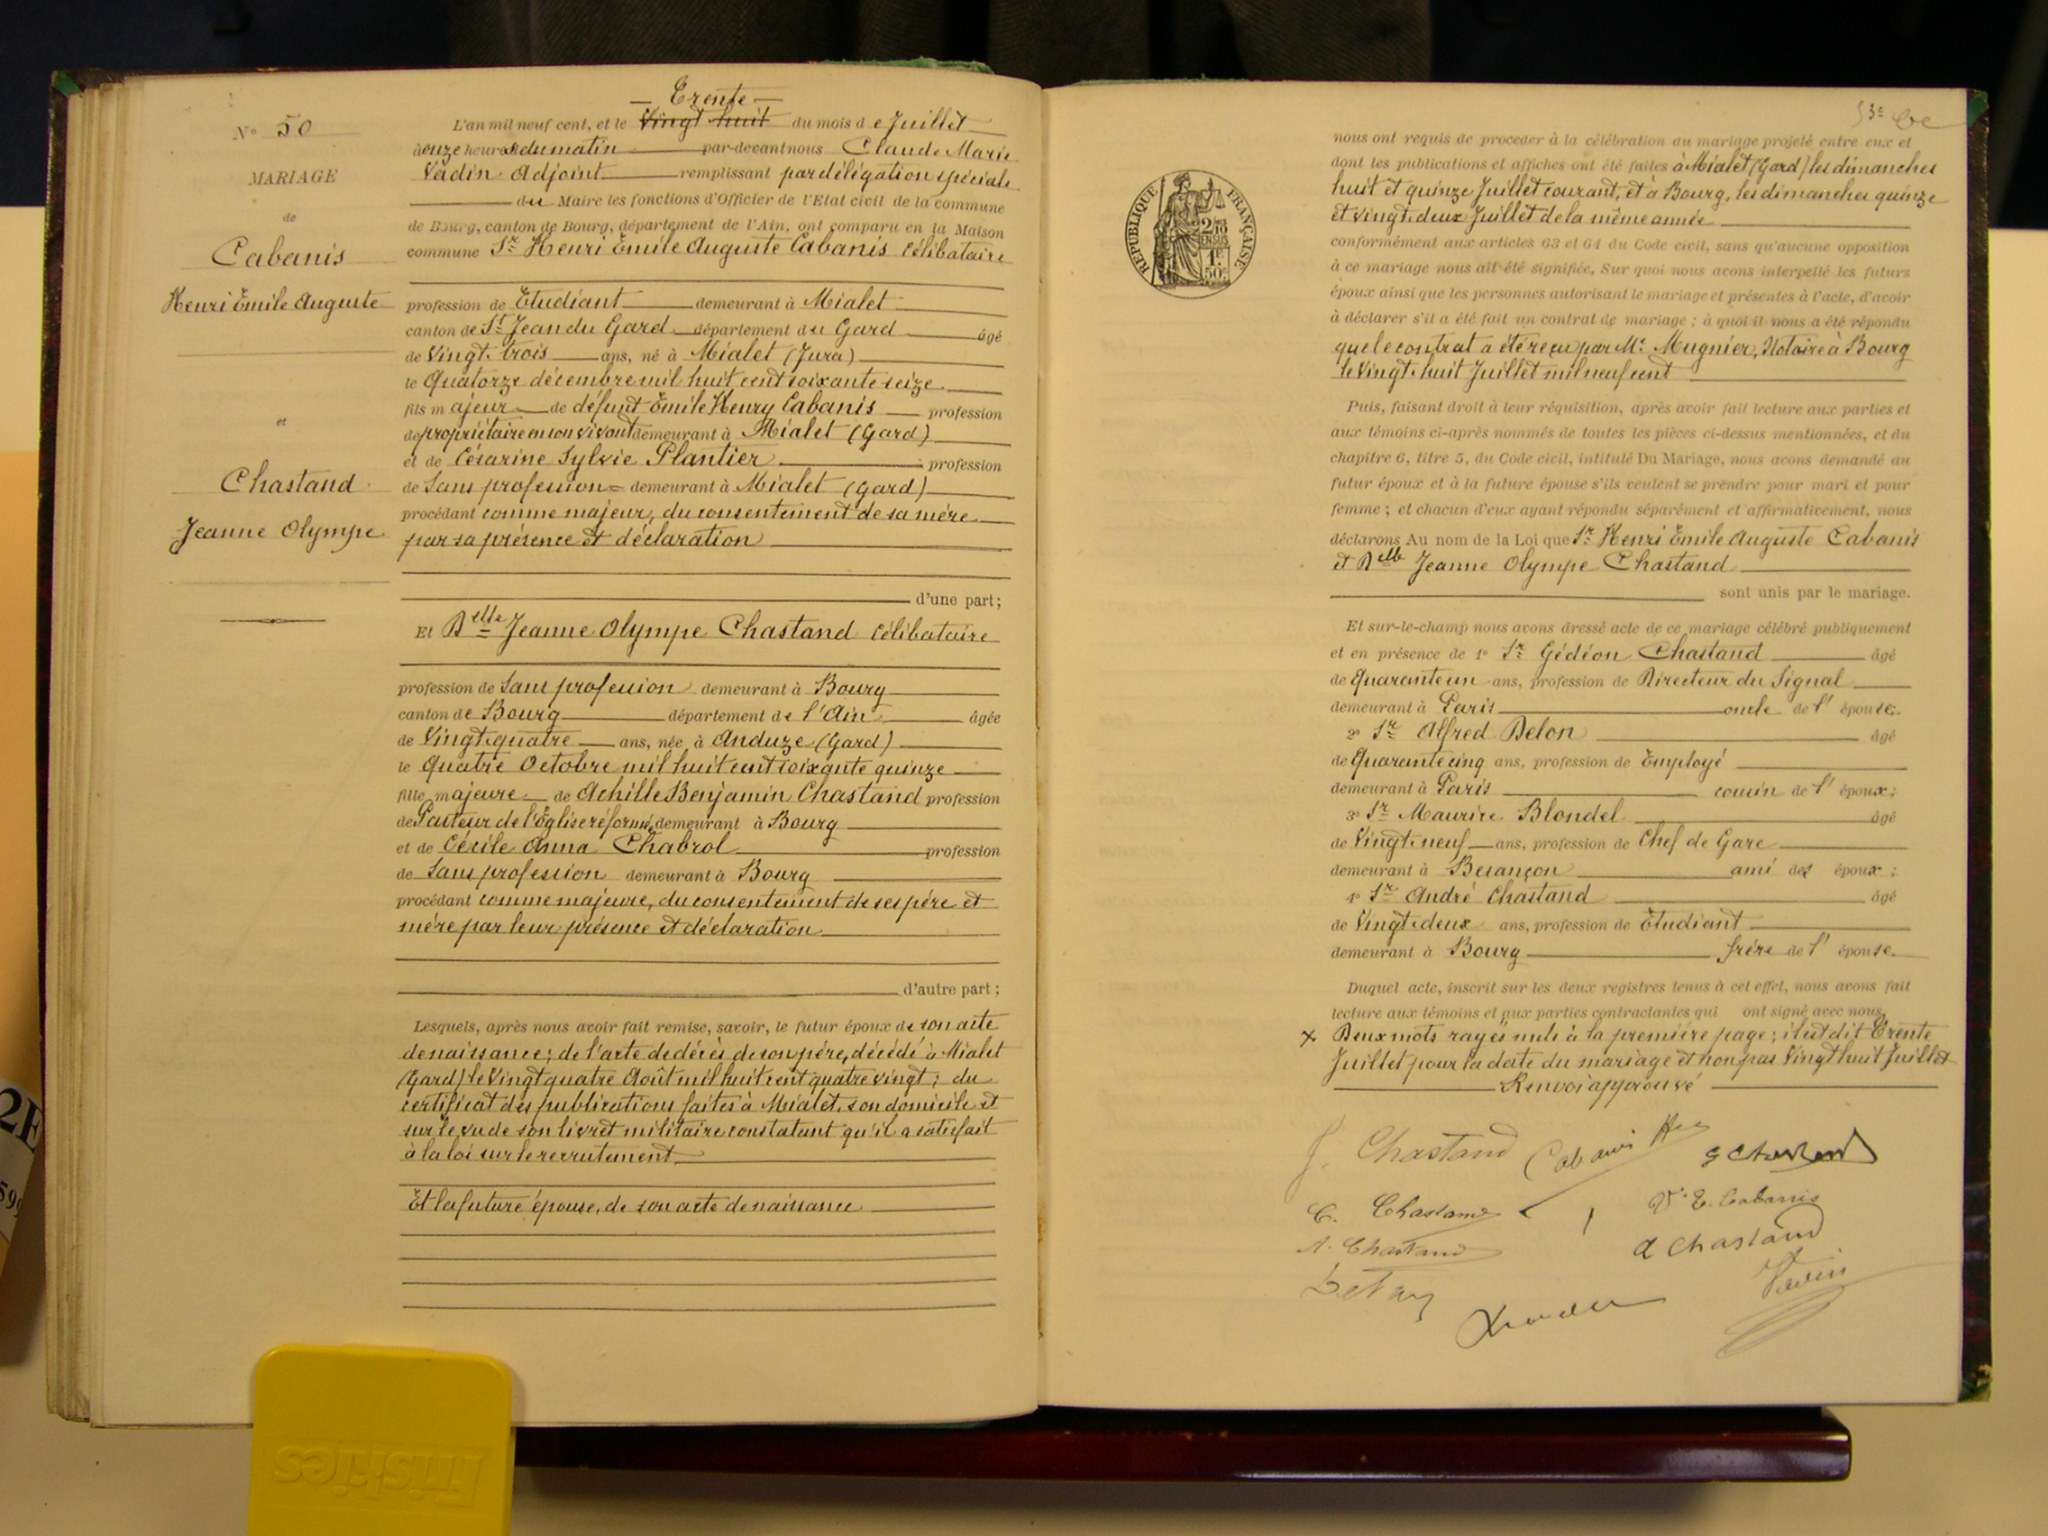 N° 50
MARIAGE
de
Cabanis
Henri Émile Auguste
et
Chastand
Jeanne Olympe
— Trente —
L'an mil neuf cent, et le Vingt huit du mois de Juillet
à onze heures du matin par-devant nous Claude Marie
Verdin Adjoint remplissant par délégation spéciale
du Maire les fonctions d'Officier de l'Etat civil de la commune
de Bourg, canton de Bourg, département de l'Ain, ont comparu en la Maison
commune Sr Henri Émile Auguste Cabanis célibataire
profession de Etudiant demeurant à Mialet
canton de St Jean du Gard département du Gard âgé
de Vingt-trois ans, né à Mialet (Jura)
le Quatorze décembre mil huit cent soixante seize
fils majeur de défunt Émile Henry Cabanis profession
de propriétaire en son vivant demeurant à Mialet (Gard)
et de Césarine Sylvie Plantier profession
de Sans profession demeurant à Mialet (Gard)
procédant comme majeur, du consentement de sa mère
par sa présence et déclaration
d'une part;
Et Delle Jeanne Olympe Chastand célibataire
profession de Sans profession demeurant à Bourg
canton de Bourg département de l'Ain âgée
de Vingt-quatre ans, née à Anduze (Gard)
le Quatre Octobre mil huit cent soixante quinze
fille majeure de Achille Benjamin Chastand profession
de Pasteur de l'Église réformée demeurant à Bourg
et de Cécile Anna Chabrol profession
de Sans profession demeurant à Bourg
procédant comme majeure, du consentement de ses père et
mère par leur présence et déclaration
d'autre part;
Lesquels, après nous avoir fait remise, savoir, le futur époux de son acte
de naissance; de l'acte de décès de son père, décédé à Mialet
(Gard) le Vingt quatre Août mil huit cent quatre vingt; du
certificat des publications faites à Mialet, son domicile et
sur le vu de son livret militaire constatant qu'il a satisfait
à la loi sur le recrutement
Et la future épouse, de son acte de naissance
RÉPUBLIQUE FRANÇAISE
nous ont requis de procéder à la célébration du mariage projeté entre eux et
dont les publications et affiches ont été faites à Mialet (Gard) les dimanches
huit et quinze Juillet courant, et à Bourg, les dimanches quinze
et vingt-deux Juillet de la même année
conformément aux articles 63 et 64 du Code civil, sans qu'aucune opposition
à ce mariage nous ait été signifiée, Sur quoi nous avons interpellé les futurs
époux ainsi que les personnes autorisant le mariage et présentes à l'acte, d'avoir
à déclarer s'il a été fait un contrat de mariage; à quoi il nous a été répondu
que le contrat a été reçu par Me Mugnier, Notaire à Bourg
le Vingt-huit Juillet mil neuf cent
Puis, faisant droit à leur réquisition, après avoir fait lecture aux parties et
aux témoins ci-après nommés de toutes les pièces ci-dessus mentionnées, et du
chapitre 6, titre 5, du Code civil, intitulé Du Mariage, nous avons demandé au
futur époux et à la future épouse s'ils veulent se prendre pour mari et pour
femme; et chacun d'eux ayant répondu séparément et affirmativement, nous
déclarons Au nom de la Loi que Sr Henri Émile Auguste Cabanis
et Delle Jeanne Olympe Chastand
sont unis par le mariage.
Et sur-le-champ nous avons dressé acte de ce mariage célébré publiquement
et en présence de 1° Sr Gédéon Chastand âgé
de Quarante un ans, profession de Directeur du Signal
demeurant à Paris oncle de l'épouse;
2° Sr Alfred Delon âgé
de Quarante cinq ans, profession de Employé
demeurant à Paris cousin de l'époux;
3° Sr Maurice Blondel âgé
de Vingt-neuf ans, profession de Chef de Gare
demeurant à Besançon ami des époux;
4° Sr André Chastand âgé
de Vingt-deux ans, profession de Etudiant
demeurant à Bourg frère de l'épouse
Duquel acte, inscrit sur les deux registres tenus à cet effet, nous avons fait
lecture aux témoins et aux parties contractantes qui ont signé avec nous
x Deux mots rayés nuls à la première page; il est dit Trente
Juillet pour la date du mariage et non pas Vingt huit Juillet
Renvoi approuvé
J. Chastand Cabanis G Chastand
C. Chastand Ve E. Cabanis
A. Chastand A Chastand
Verdin